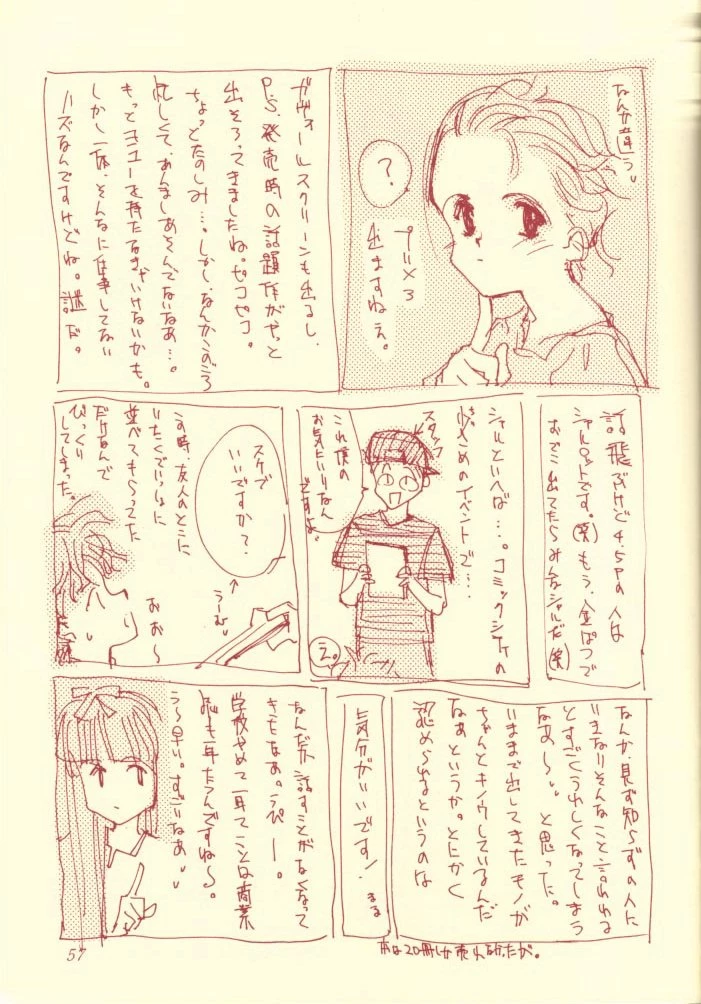 なんか違う。
?
プリメ3
出ますねえ。
ガヴォールスクリーンも出るし、
P.S.発売時の話題作がやっと
出そろってきましたね。ピコピコ。
ちょっとたのしみ…。しかし、なんかこのごろ
忙しくて、あんましあそんでないなあ…。
もっとヨユーを持たなきゃいけないかも。
しかし一体、そんなに仕事してない
ハズなんですけどね。謎だ。
話飛ぶけど4.5Pの人は
シャルロットです。(笑)もう、金ぱつで
おでこ出てたらみんなシャルだ(笑)
シャルといへば…。コミックシティの
少女どめのイベントで…
スタッフ
これ僕の
お気にいりなん
ですよ。
え。
スケブ
いいですか?
うーむ
この時、友人のとこに
いたくでいしょに
並べてもらってた
だけなんで
びっくり
してしまった。
おお〜
なんか、見ず知らずの人に
いきなりそんなこと言われる
とすごくうれしくなってしまう
なあ〜。と思った。
いままで出してきたモノが
ちゃんとキノウしているんだ
なぁというか。とにかく
認められるというのは
気分がいいです!まる
本は20冊しか売れなかったが。
なんだか話すことがなくなって
きたなあ。うぴー。
学校やめて一年てことは商業
誌も一年たつんですね〜。
う〜早い。すごいなあ
57